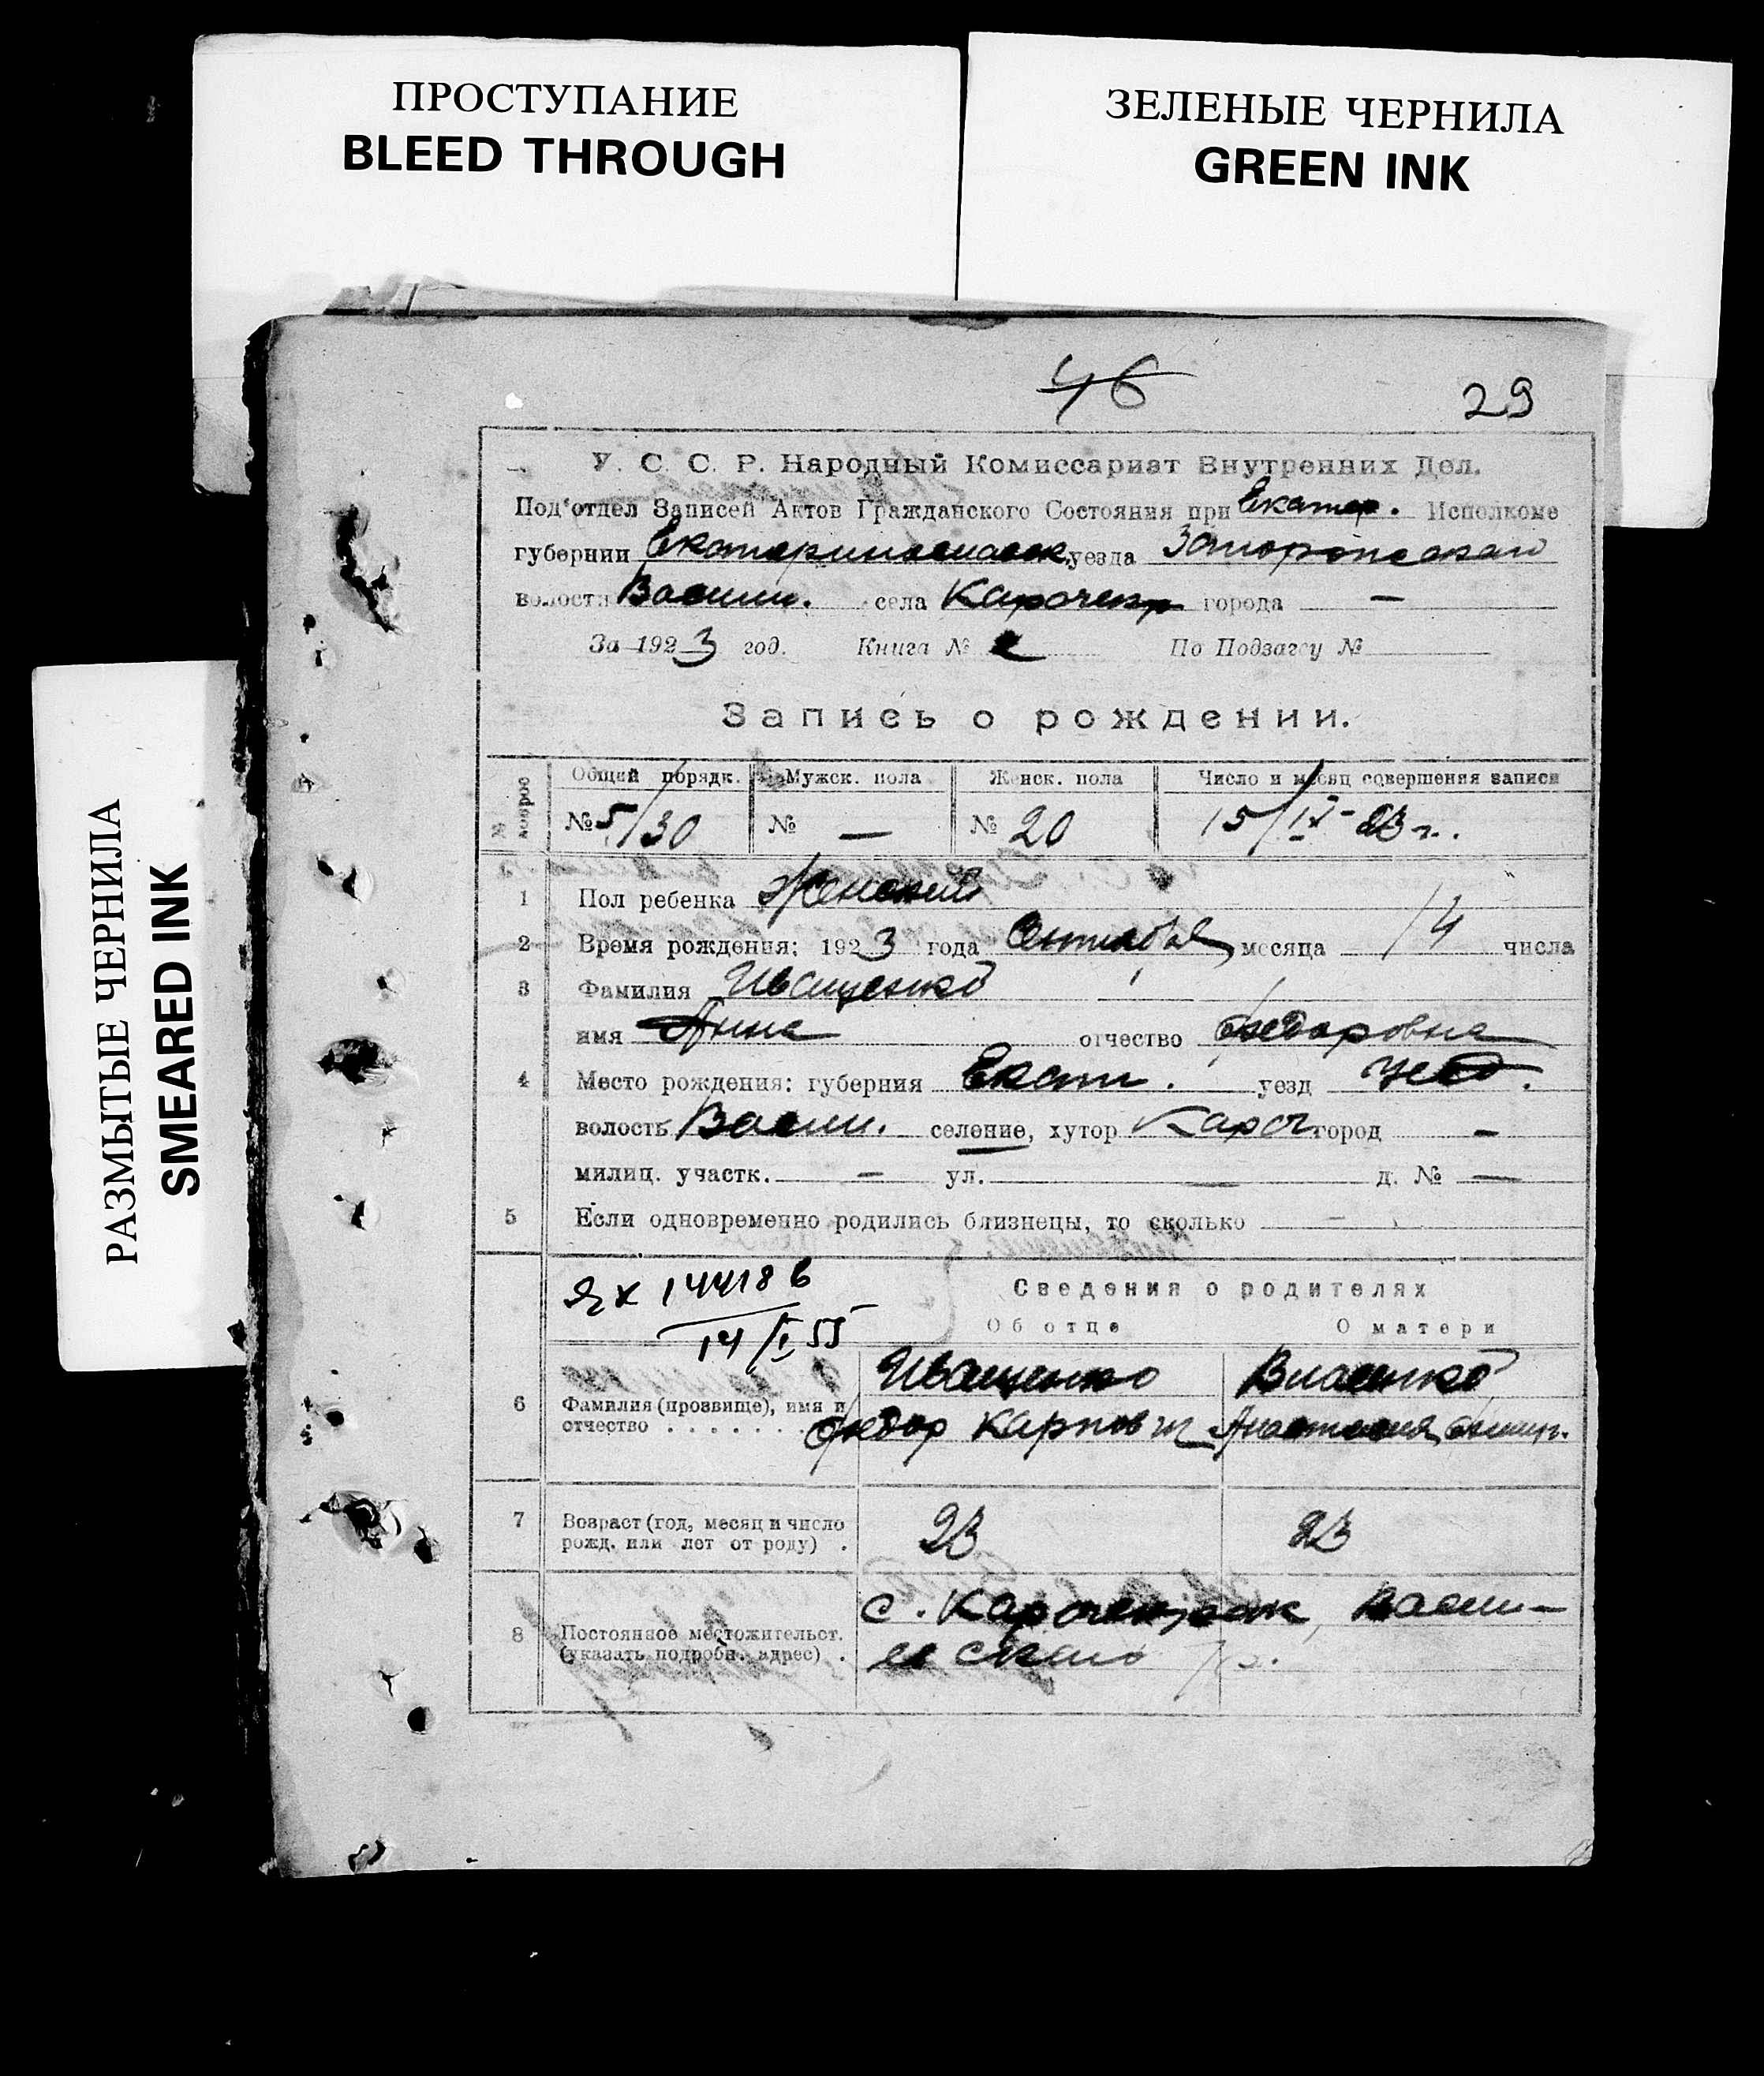 ПРОСТУПАНИЕ
BLEED THROUGH
ЗЕЛЕНЫЕ ЧЕРНИЛА
GREEN INK
РАЗМЫТЫЕ ЧЕРНИЛА
SMEARED INK
46
29
У. С. С. Р. Народный Комиссариат Внутренних Дел.
Под'отдел Записей Актов Гражданского Состояния при Екатер. Исполкоме
губернии уезда
волости Васил. села города —
За 1923 год. Книга № По Подзагсу №
Запись о рождении.
№ вопрос Общий порядк. Мужск. пола Женск. пола Число и месяц совершения записи
№ 5/30 № — № 20 15/IX-23 г.
1 Пол ребенка Женский
2 Время рождения: 1923 года месяца 14 числа
3 Фамилия Иващенко
имя Анна отчество Федоровна
4 Место рождения: губерния Екат. уезд
волость Васил. селение, хутор город —
милиц. участк. — ул. — д. № —
5 Если одновременно родились близнецы, то сколько —
144186
14/I 55
Сведения о родителях
Об отце О матери
6 Фамилия (прозвище), имя и отчество . . . . . . . Иващенко Федор Карпович Власенко Анастасия
7 Возраст (год, месяц и число рожд. или лет от роду) . 23 23
8 Постоянное местожительст. (указать подробн. адрес) . с.